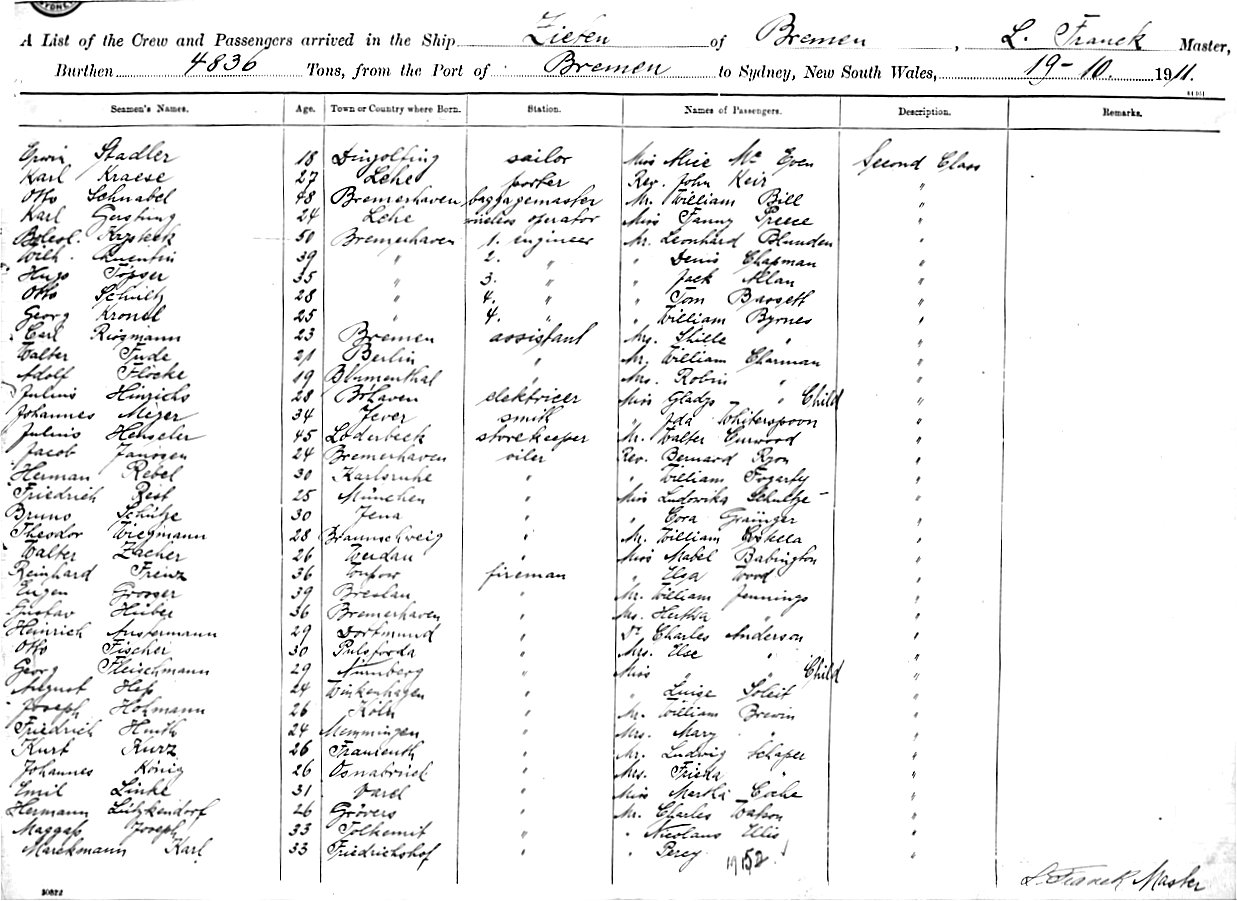 SYDNEY
A List of the Crew and Passengers arrived in the Ship Zieten of Bremen, L. Franck Master,
Burthen 4836 Tons, from the Port of Bremen to Sydney, New South Wales, 19-10. 1911.
Seamen's Names. Age. Town or Country where Born. Station. Names of Passengers. Description. Remarks.
Erwin Stadler 18 Dingolfing sailor Miss Alice Mc Even Second Class
Karl Kraese 27 Lehe porter Rev. John Keir "
Otto Schnabel 48 Bremerhaven baggagemaster Mr. William Bill "
Karl Gersting 24 Lehe operator Miss Fanny Preece "
Krysteck 50 Bremerhaven 1. engineer Mr. Leonhard Blunden "
Wilh. Quentin 39 " 2. " " Denis Chapman "
Hugo Töpser 35 " 3. " Jack Allan "
Otto Schultz 28 " 4. " " Tom Bassett "
Georg Kronel 25 " 4. " William Byrnes "
Carl Ringmann 23 Bremen assistant Mrs. Shille " "
Walter Tude 21 Berlin " Mr. William Charman "
Adolf Flocke 19 Blumenthal " Mrs. Robin " "
Julius Hinrichs 28 B'haven elektricer Miss Gladys " Child "
Johannes Meyer 34 Jever smith " Ida Whiterspoon "
Julius Henseler 45 Lüderbeck storekeeper Mr. Walter Curwood "
Jacob Janssen 24 Bremerhaven oiler Rev. Bernard Ryan "
Herman Rebel 30 Karlsruhe " " William Fogarty "
Friedrich Best 25 München " Miss Ludowika Schultze "
Bruno Schütze 30 Jena " " Cora Grainger "
Theodor Wiegmann 28 Braunschweig " Mr. William "
Walter Zacher 26 Werdau " Miss Mabel Babington "
Reinhard Frenz 36 fireman " Elsa Wood "
Eugen Grosser 39 Breslau " Mr. William Jennings "
Gustav Huber 36 Bremerhaven " Mrs. Hertha " "
Heinrich Austermann 29 Dortmund " Dr. Charles Anderson "
Otto Fischer 30 Pulsforda " Mrs. Else " "
Georg Fleischmann 29 Nürnberg " Miss " Child "
August Hess 24 Winkenhagen " " Luise Soleit "
Joseph Hohmann 26 Köln " Mr. William Brewin "
Friedrich Huith 24 Memmingen " Mrs. Mary " "
Kurt Kurz 26 Fraureuth " Mr. Ludwig Schaper "
Johannes König 26 Osnabrück " Mrs. Frieda " "
Emil Linke 31 Varel " Miss Martha Coche "
Hermann Lützkendorf 26 Gröbers " Mr. Charles Watson "
Maggap Joseph 33 Tolkemit " " Nicolaus Ellis "
Marckmann Karl 33 Friedrichshof " " Percy "
L. Franck Master
10822